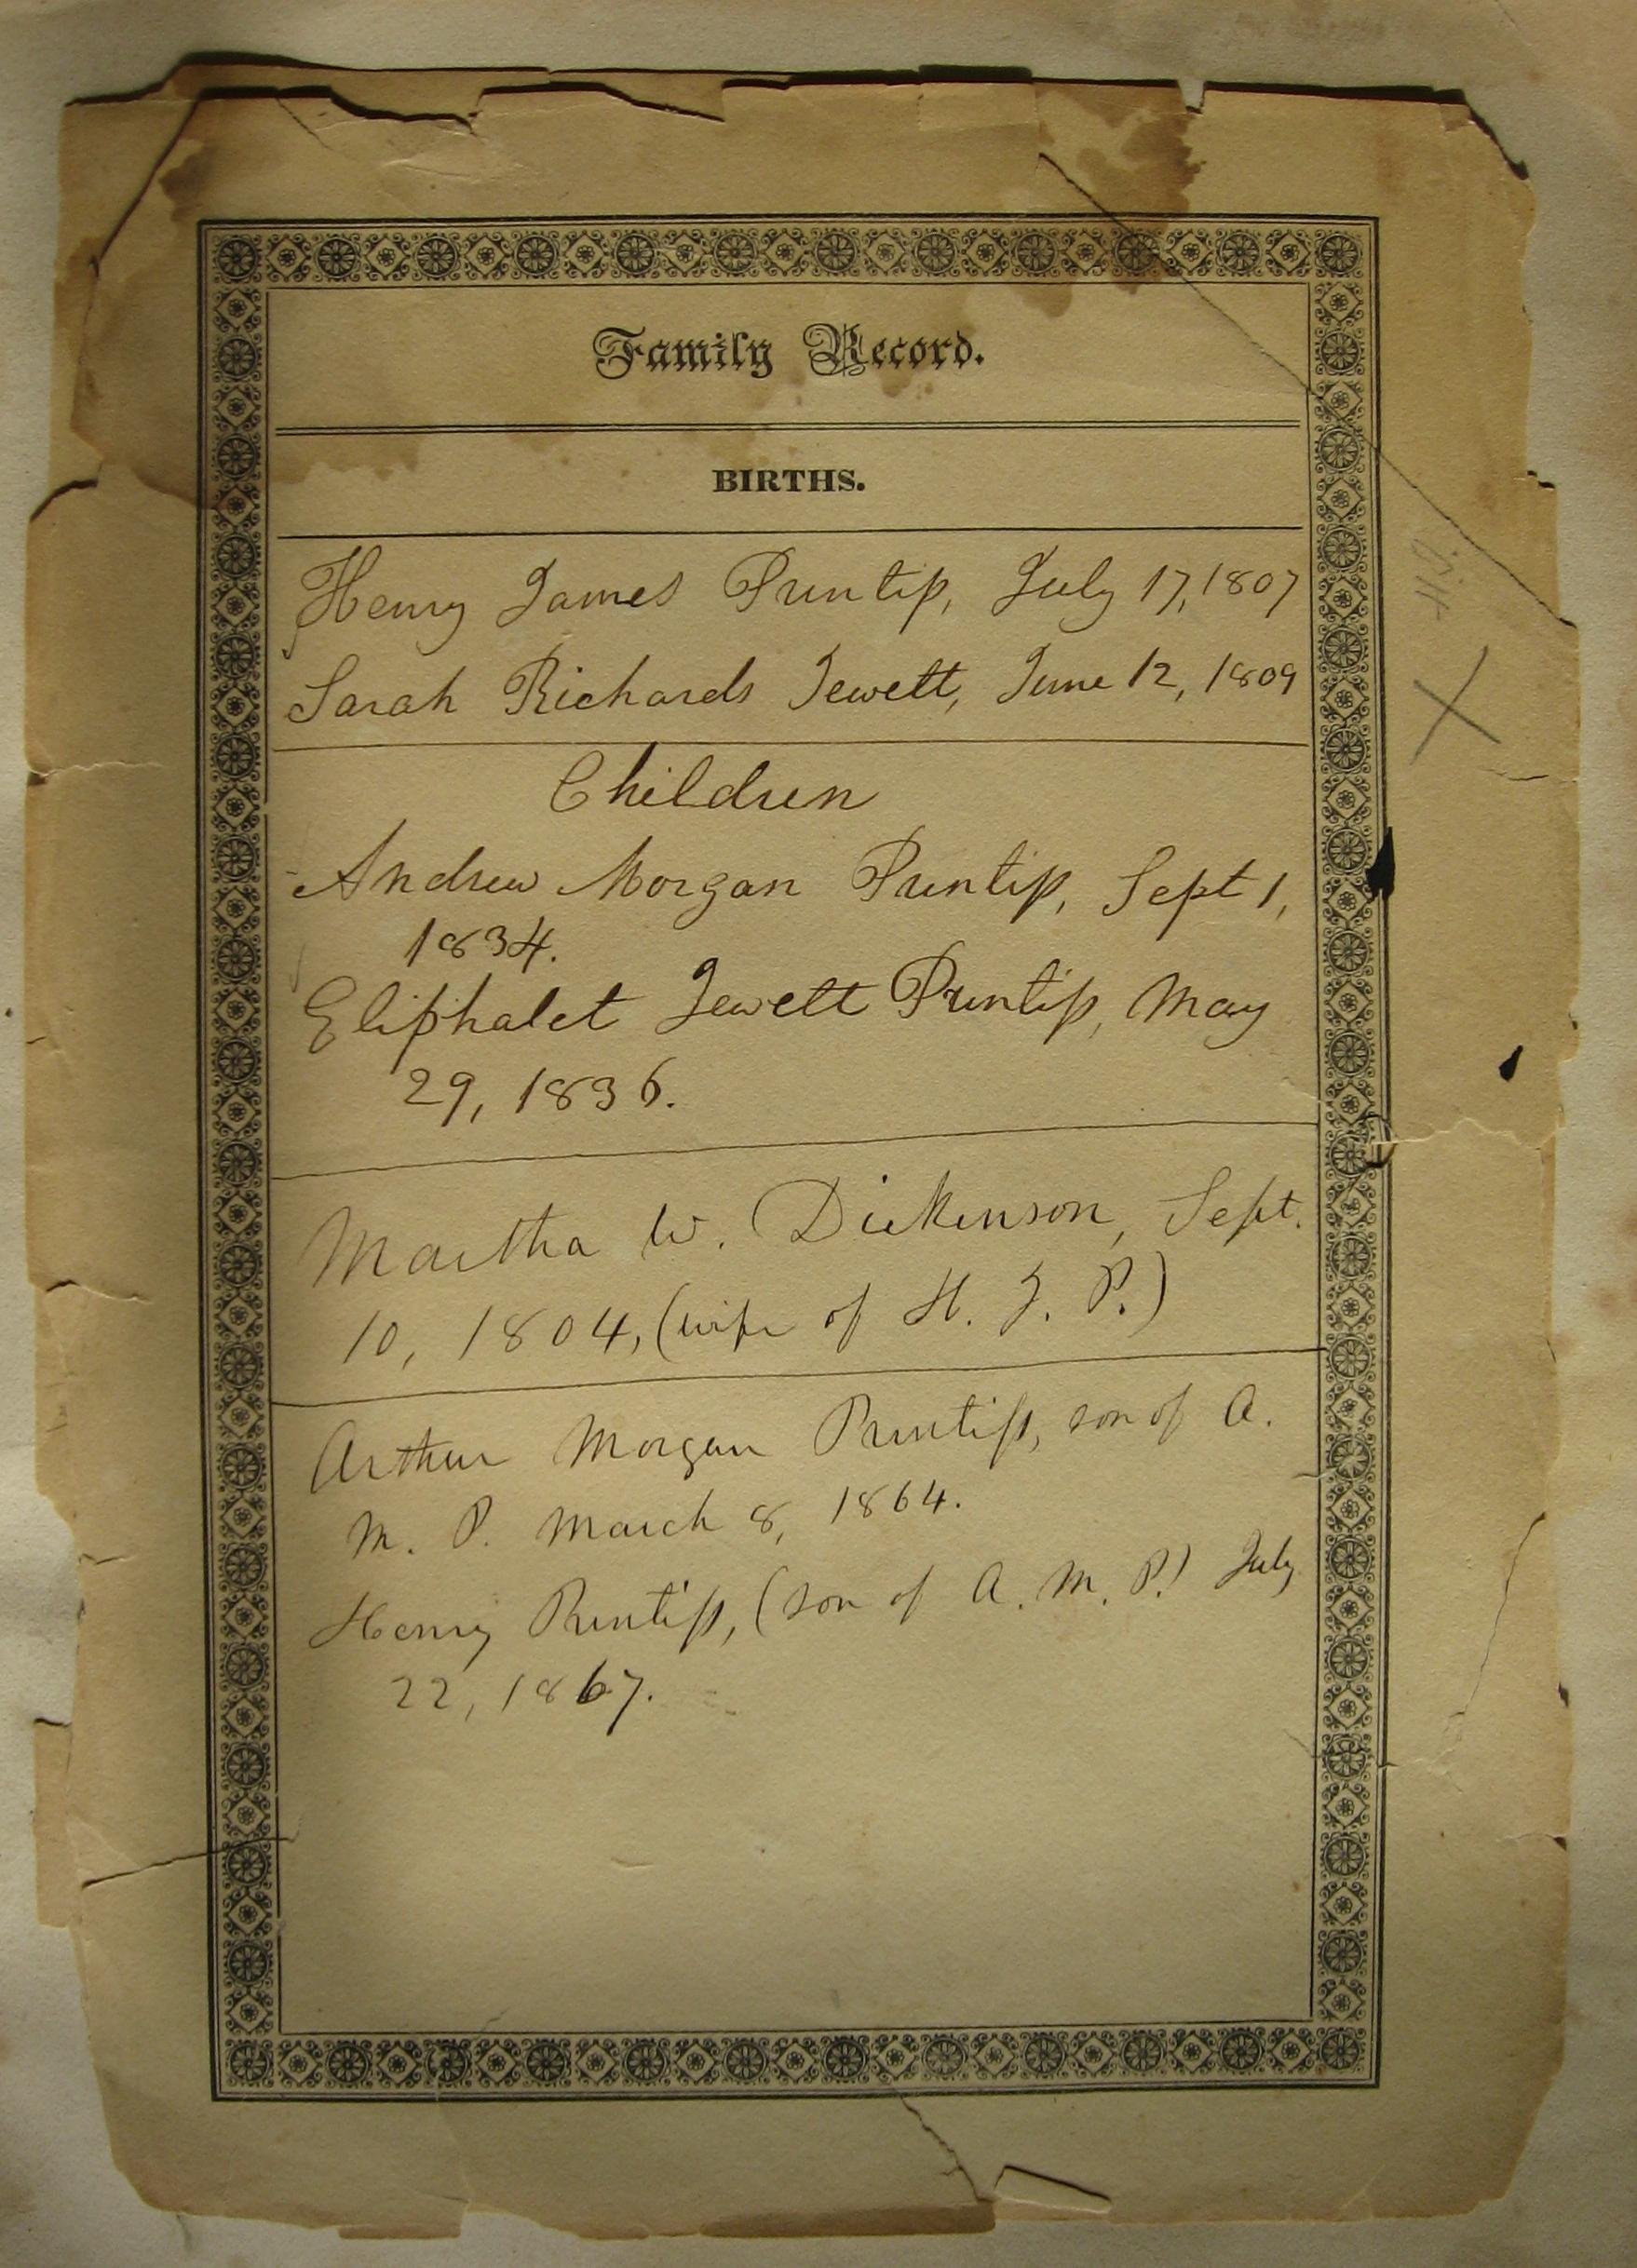 Family Record.
BIRTHS.
Henry James Prentiss, July 17, 1807
Sarah Richards Jewett, June 12, 1809
Children
Andrew Morgan Prentiss, Sept 1,
1834.
Eliphalet Jewett Prentiss, May
29, 1836.
Martha W. Dickenson, Sept.
10, 1804, (wife of H. J. P.)
Arthur Morgan Prentiss, son of A.
M. P. March 8, 1864.
Henry Prentiss, (son of A. M. P.) July
22, 1867.
X